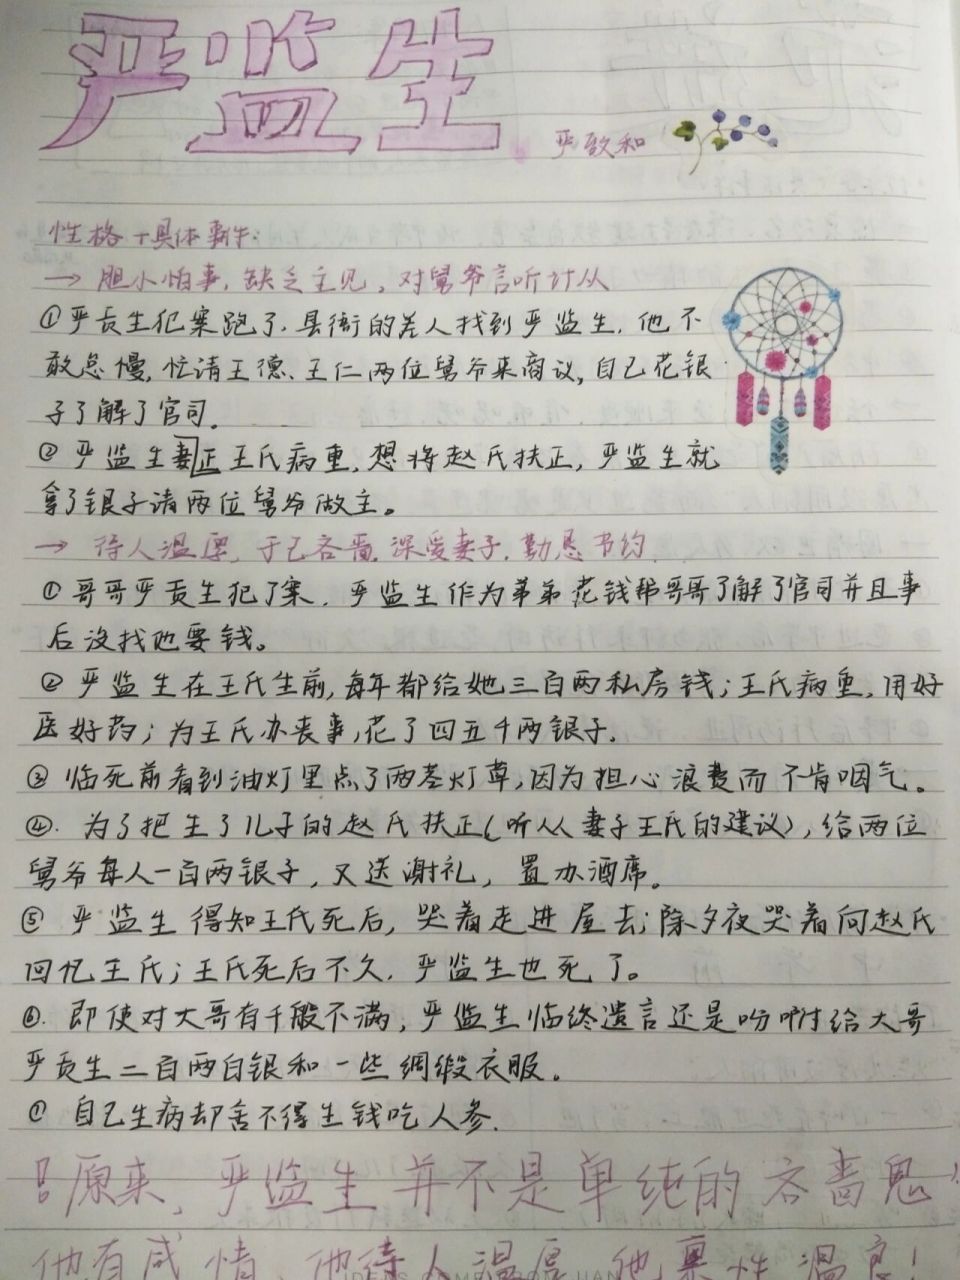 严监生
严致和
性格+具体事件:
→ 胆小怕事,缺乏主见,对舅爷言听计从
①严贡生犯案跑了,县衙的差人找到严监生,他不
敢怠慢,忙请王德、王仁两位舅爷来商议,自己花银
子了解了官司。
②严监生妻正王氏病重,想将赵氏扶正,严监生就
拿了银子请两位舅爷做主。
→ 待人温厚,于己吝啬,深爱妻子,勤恳节约
①哥哥严贡生犯了案,严监生作为弟弟花钱帮哥哥了解了官司并且事
后没找他要钱。
②严监生在王氏生前,每年都给她三百两私房钱;王氏病重,用好
医好药;为王氏办丧事,花了四五千两银子。
③临死前看到油灯里点了两茎灯草,因为担心浪费而不肯咽气。
④.为了把生了儿子的赵氏扶正(听从妻子王氏的建议),给两位
舅爷每人一百两银子,又送谢礼,置办酒席。
⑤严监生得知王氏死后,哭着走进屋去;除夕夜哭着向赵氏
回忆王氏;王氏死后不久,严监生也死了。
⑥.即使对大哥有千般不满,严监生临终遗言还是吩咐给大哥
严贡生二百两白银和一些绸缎衣服。
⑦自己生病却舍不得生钱吃人参.
!原来,严监生并不是单纯的吝啬鬼,
他有感情,他待人温厚,他禀性温良!